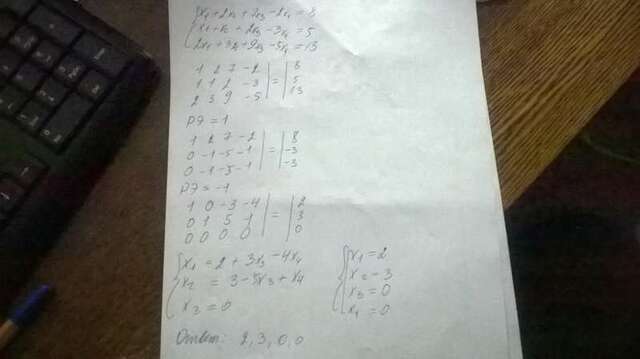 x₁+2x₂+7x₃-2x₄=8
x₁+x₂+2x₃-3x₄=5
2x₁+3x₂+9x₃-5x₄=13
1 2 7 -2 | = | 8
1 1 2 -3 | = | 5
2 3 9 -5 | = | 13
РЭ=1
1 2 7 -2 | = | 8
0 -1 -5 -1 | = | -3
0 -1 -5 -1 | = | -3
РЭ=-1
1 0 -3 -4 | = | 2
0 1 5 1 | = | 3
0 0 0 0 | = | 0
x₁ = 2+3x₃-4x₄
x₂ = 3-5x₃+x₄
x₃=0
x₁=2
x₂-3
x₃=0
x₁=0
Ответ: 2, 3, 0, 0